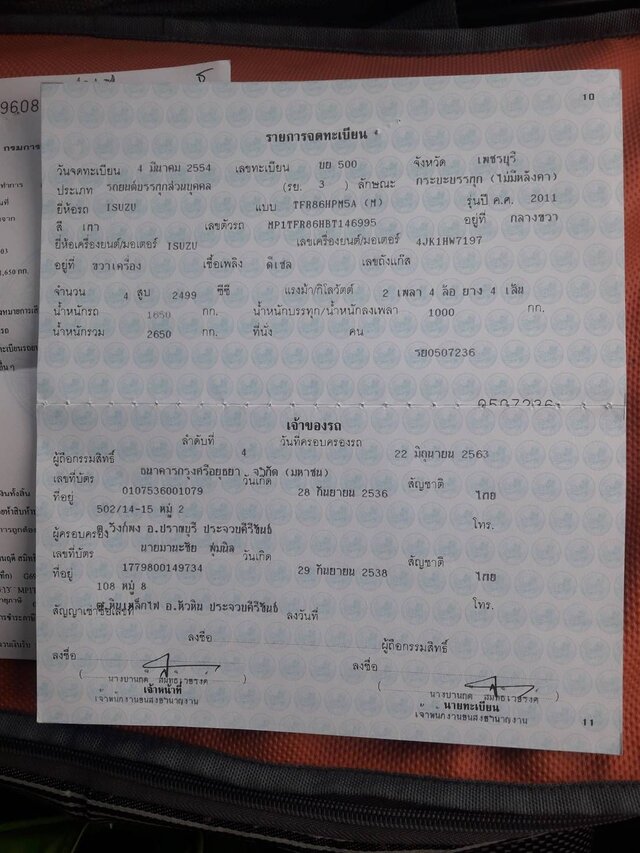 9608
กรมการ
10
รายการจดทะเบียน
วันจดทะเบียน 4 มีนาคม 2554 เลขทะเบียน บย 500 จังหวัด เพชรบุรี
ประเภท รถยนต์บรรทุกส่วนบุคคล (รย. 3) ลักษณะ กระบะบรรทุก (ไม่มีหลังคา)
ยี่ห้อรถ ISUZU แบบ TFR86HPM5A (M) รุ่นปี ค.ศ. 2011
สี เทา เลขตัวรถ MP1TFR86HBT146995 อยู่ที่ กลางขวา
ยี่ห้อเครื่องยนต์/มอเตอร์ ISUZU เลขเครื่องยนต์/มอเตอร์ 4JK1HW7197
อยู่ที่ ขวาเครื่อง เชื้อเพลิง ดีเซล เลขถังแก๊ส
จำนวน 4 สูบ 2499 ซีซี แรงม้า/กิโลวัตต์ 2 เพลา 4 ล้อ ยาง 4 เส้น
น้ำหนักรถ 1650 กก. น้ำหนักบรรทุก/น้ำหนักลงเพลา 1000 กก.
น้ำหนักรวม 2650 กก. ที่นั่ง คน
รย0507236
เจ้าของรถ
ลำดับที่ 4 วันที่ครอบครองรถ 22 มิถุนายน 2563
ผู้ถือกรรมสิทธิ์ ธนาคารกรุงศรีอยุธยา จำกัด (มหาชน)
เลขที่บัตร 0107536001079 วันเกิด 28 กันยายน 2536 สัญชาติ ไทย
ที่อยู่ 502/14-15 หมู่ 2
ต.วังก์พง อ.ปราณบุรี ประจวบคีรีขันธ์ โทร.
ผู้ครอบครอง นายมานะชัย พุ่มนิล
เลขที่บัตร 1779800149734 วันเกิด 29 กันยายน 2538 สัญชาติ ไทย
ที่อยู่ 108 หมู่ 8
ต.หินเหล็กไฟ อ.หัวหิน ประจวบคีรีขันธ์ โทร.
สัญญาเช่าซื้อเลขที่ ลงวันที่
ลงชื่อ ผู้ถือกรรมสิทธิ์
ลงชื่อ ลงชื่อ
เจ้าหน้าที่ นายทะเบียน
เจ้าพนักงานขนส่งชำนาญงาน เจ้าพนักงานขนส่งชำนาญงาน
11